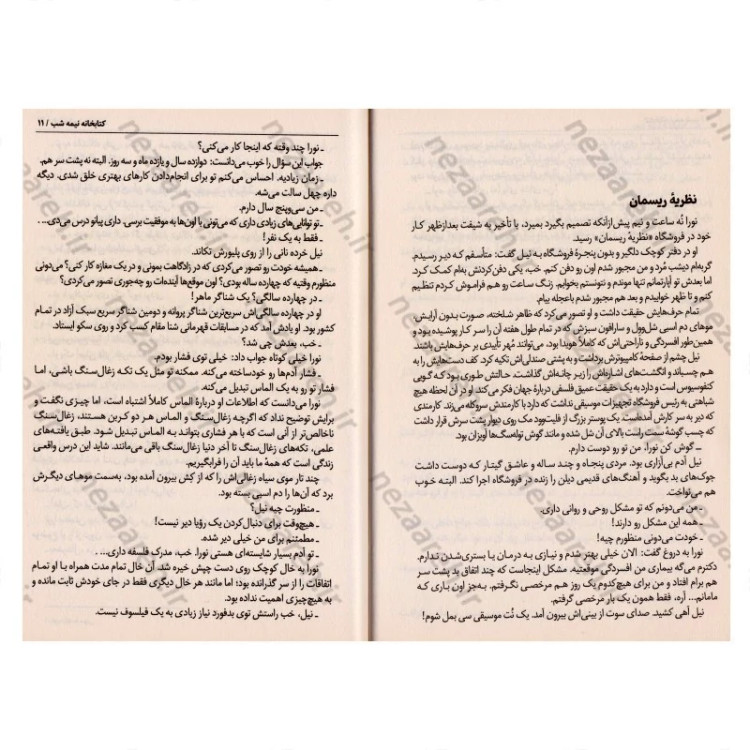 نظریهٔ ریسمان
نورا نُه ساعت و نیم پیش‌ازآنکه تصمیم بگیرد بمیرد، با تأخیر به شیفت بعدازظهر کار
خود در فروشگاه «نظریهٔ ریسمان» رسید.
او در دفتر کوچک دلگیر و بدون پنجرهٔ فروشگاه به نیل گفت: متأسفم که دیر رسیدم.
گربه‌ام دیشب مُرد و من مجبور شدم اون رو دفن کنم. خب، یکی دفن‌کردنش به‌ام کمک کرد.
اما بعدش تو آپارتمانم تنها موندم و نتونستم بخوابم. زنگ ساعت رو هم فراموش کردم تنظیم
کنم و تا ظهر خوابیدم و بعد هم مجبور شدم باعجله بیام.
تمام حرف‌هایش حقیقت داشت و او تصور می‌کرد که ظاهر شلخته، صورت بدون آرایش،
موهای دم اسبی شل‌وول و سارافون سبزش که در تمام طول هفته آن را سر کار پوشیده بود و
همین‌طور افسردگی و ناراحتی‌اش که کاملاً هویدا بود، می‌توانند مُهر تأییدی بر حرف‌هایش باشند.
نیل چشم از صفحهٔ کامپیوترش برداشت و به پشتی صندلی‌اش تکیه کرد. کف دست‌هایش را به
هم چسباند و انگشت‌های اشاره‌اش را زیر چانه‌اش گذاشت. حالتش طوری بود که گویی
کنفوسیوس است و دارد به یک حقیقت عمیق فلسفی دربارهٔ جهان فکر می‌کند. او در آن لحظه هیچ
شباهتی به رئیس فروشگاه تجهیزات موسیقی نداشت که دارد با کارمندش سروکله می‌زند. کارمندی
که دیر به سر کارش آمده‌است. یک پوستر بزرگ از فلیت‌وود مک روی دیوار پشت سرش قرار داشت
که چسب گوشهٔ سمت راست بالای آن شل شده و مانند گوش توله‌سگ‌ها آویزان بود.
ـ گوش کن نورا، من تو رو دوست دارم.
نیل آدم بی‌آزاری بود. مردی پنجاه و چند ساله و عاشق گیتار که دوست داشت
جوک‌های بد بگوید و آهنگ‌های قدیمی دیلن را زنده در فروشگاه اجرا کند. البته خوب
هم می‌نواخت.
ـ من می‌دونم که تو مشکل روحی و روانی داری.
ـ همه این مشکل رو دارند!
ـ خودت می‌دونی منظورم چیه!
نورا به دروغ گفت: الان خیلی بهتر شدم و نیازی به درمان یا بستری‌شدن ندارم.
دکترم می‌گه بیماری من افسردگی موقعیتیه. مشکل اینجاست که چند اتفاق بد پشت سر
هم برام افتاد و من برای هیچ‌کدوم یک روز هم مرخصی نگرفتم. به‌جز اون باری که
مامانم... آره، فقط همون یک بار مرخصی گرفتم.
نیل آهی کشید. صدای سوت از بینی‌اش بیرون آمد. یک نُت موسیقی سی بمل شوم!
کتابخانه نیمه شب / ۱۱
ـ نورا چند وقته که اینجا کار می‌کنی؟
جواب این سؤال را خوب می‌دانست: دوازده سال و یازده ماه و سه روز. البته نه پشت سر هم.
ـ زمان زیادیه. احساس می‌کنم تو برای انجام‌دادن کارهای بهتری خلق شدی. دیگه
داره چهل سالت می‌شه.
ـ من سی‌وپنج سال دارم.
ـ تو توانایی‌های زیادی داری که می‌تونی با اون‌ها به موفقیت برسی. داری پیانو درس می‌دی...
ـ فقط به یک نفر!
نیل خرده نانی را از روی پلیورش تکاند.
ـ همیشه خودت رو تصور می‌کردی که در زادگاهت بمونی و در یک مغازه کار کنی؟ می‌دونی
منظورم وقتیه که چهارده ساله بودی؟ اون موقع‌ها آینده‌ات رو چه‌جوری تصور می‌کردی؟
ـ در چهارده سالگی؟ یک شناگر ماهر!
او در چهارده سالگی‌اش سریع‌ترین شناگر پروانه و دومین شناگر سریع سبک آزاد در تمام
کشور بود. او یادش آمد که در مسابقات قهرمانی شنا مقام کسب کرد و روی سکو ایستاد.
ـ خب، بعدش چی شد؟
نورا خیلی کوتاه جواب داد: خیلی توی فشار بودم.
ـ فشار آدم‌ها رو خودساخته می‌کنه. ممکنه تو مثل یک تکه زغال‌سنگ باشی، اما
فشار تو رو به یک الماس تبدیل می‌کنه.
نورا می‌دانست که اطلاعات او دربارهٔ الماس کاملاً اشتباه است، اما چیزی نگفت و
برایش توضیح نداد که اگرچه زغال‌سنگ و الماس هر دو کربن هستند، زغال‌سنگ
ناخالص‌تر از آنی است که با هر فشاری بتواند به الماس تبدیل شود. طبق یافته‌های
علمی، تکه‌های زغال‌سنگ تا آخر دنیا زغال‌سنگ باقی می‌مانند. شاید این درس واقعی
زندگی است که همهٔ ما باید آن را فرابگیریم.
چند تار موی سیاه زغالی‌اش را که از کِش بیرون آمده بود، به‌سمت موهای دیگرش
برد که آن‌ها را دم اسبی بسته بود.
ـ منظورت چیه نیل؟
ـ هیچ‌وقت برای دنبال‌کردن یک رؤیا دیر نیست!
ـ مطمئنم برای من خیلی دیر شده.
ـ تو آدم بسیار شایسته‌ای هستی نورا. خب، مدرک فلسفه داری...
نورا به خال کوچک روی دست چپش خیره شد. آن خال تمام مدت همراه با او تمام
اتفاقات را از سر گذرانده بود؛ اما مانند هر خال دیگری فقط در جای خودش ثابت مانده و
به هیچ‌چیزی اهمیت نداده بود.
ـ نیل، خب راستش توی بدفورد نیاز زیادی به یک فیلسوف نیست.
nezaareh.ir